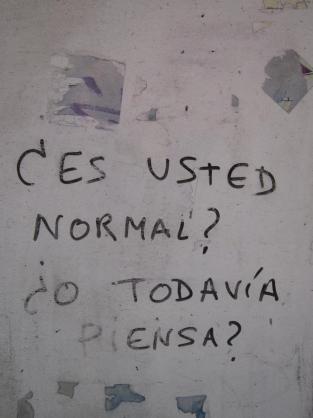 ¿ES USTED
NORMAL?
¿O TODAVÍA
PIENSA?